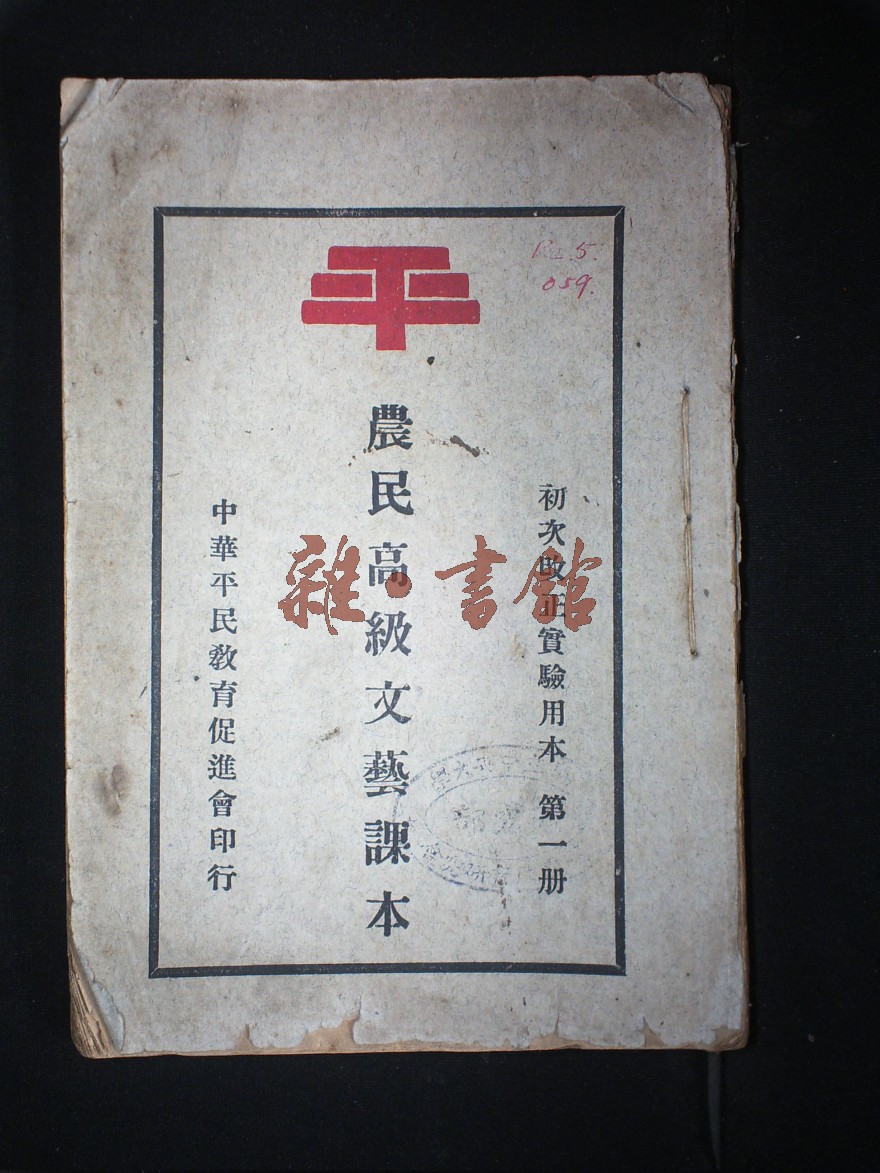 平
Rz 5.
059.
初次改正實驗用本 第一册
農民高級文藝課本
中華平民教育促進會印行
雜·書館